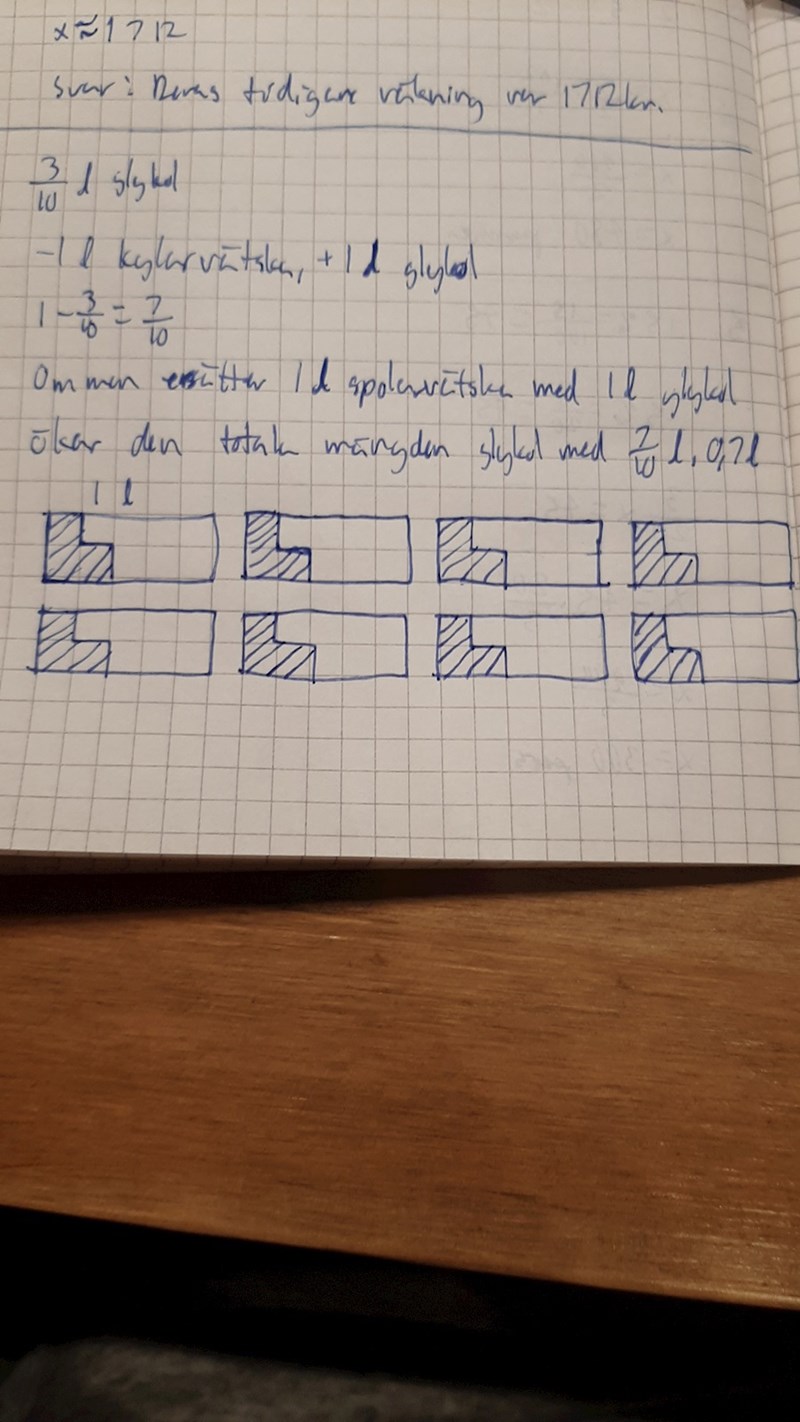 x ≈ 1712
Svar: Deras tidigare räkning var 1712 kr.
3/10 l glykol
-1 l kylarvätska, +1 l glykol
1 - 3/10 = 7/10
Om man ersätter 1 l spolarvätska med 1 l glykol
ökar den totala mängden glykol med 7/10 l, 0,7 l
1 l